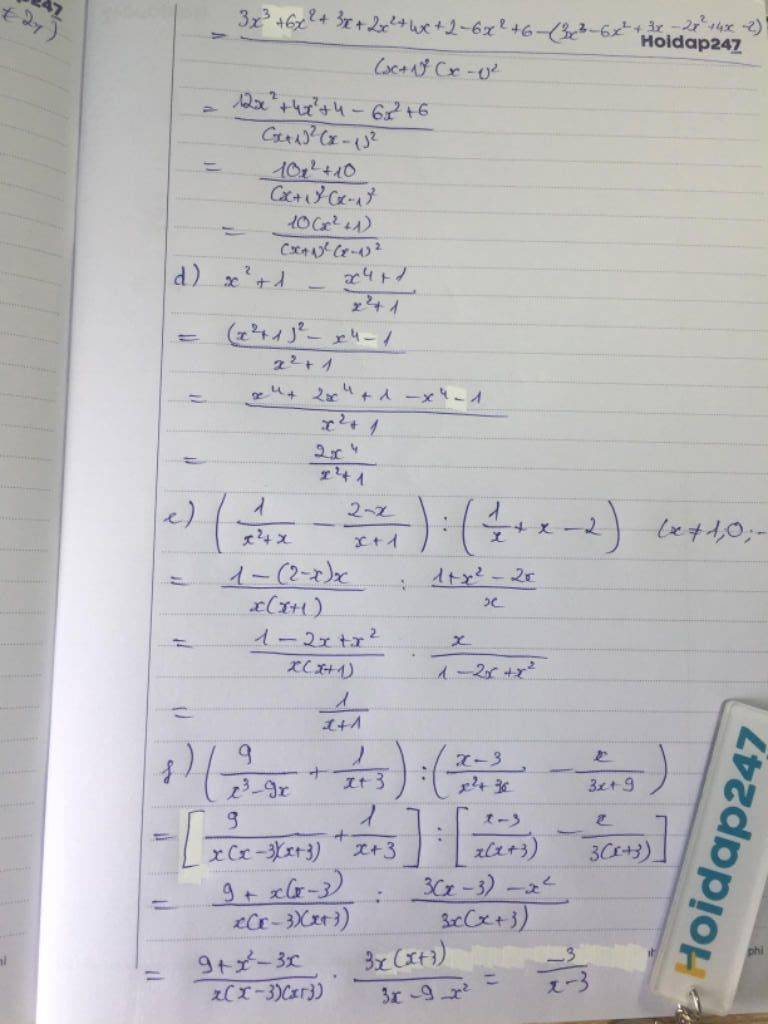 = (3x³ + 6x² + 3x + 2x² + 4x + 2 - 6x² + 6 - (3x³ - 6x² + 3x - 2x² + 4x - 2)) / ((x+1)² (x-1)²)
Hoidap247
= (12x² + 4x² + 4 - 6x² + 6) / ((x+1)² (x-1)²)
= (10x² + 10) / ((x+1)² (x-1)²)
= 10(x² + 1) / ((x+1)² (x-1)²)
d) x² + 1 - (x⁴ + 1) / (x² + 1)
= ((x² + 1)² - x⁴ - 1) / (x² + 1)
= (x⁴ + 2x⁴ + 1 - x⁴ - 1) / (x² + 1)
= 2x⁴ / (x² + 1)
e) (1 / (x² + x) - (2-x) / (x+1)) : (1/x + x - 2) (x ≠ 1, 0; -
= (1 - (2-x)x) / (x(x+1)) : (1 + x² - 2x) / x
= (1 - 2x + x²) / (x(x+1)) . x / (1 - 2x + x²)
= 1 / (x+1)
f) (9 / (x³ - 9x) + 1 / (x+3)) : ((x-3) / (x² + 3x) - x / (3x+9))
= [9 / (x(x-3)(x+3)) + 1 / (x+3)] : [(x-3) / (x(x+3)) - x / (3(x+3))]
= (9 + x(x-3)) / (x(x-3)(x+3)) : (3(x-3) - x²) / (3x(x+3))
= (9 + x² - 3x) / (x(x-3)(x+3)) . 3x(x+3) / (3x - 9 - x²) = -3 / (x-3)
Hoidap247